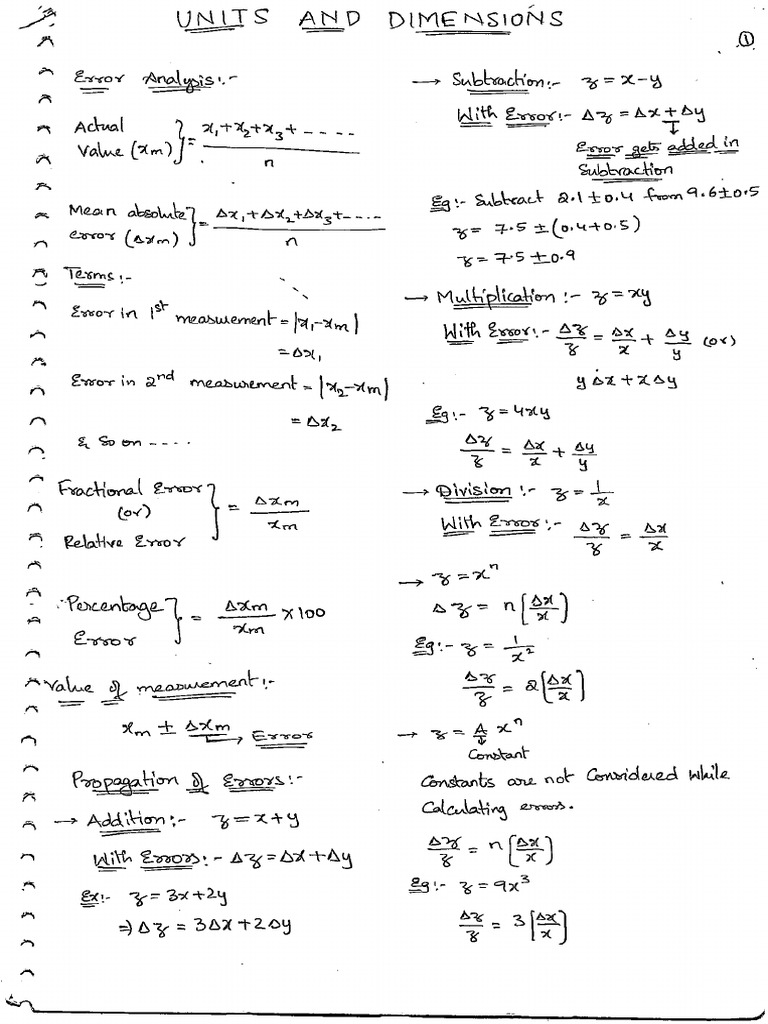 UNITS AND DIMENSIONS
①
Error Analysis:-
Actual Value (xm) } = x1+x2+x3+ ---- / n
Mean absolute error (Δxm) } = Δx1+Δx2+Δx3+---- / n
Terms:-
Error in 1st measurement = |x1-xm|
= Δx1
Error in 2nd measurement = |x2-xm|
= Δx2
& So on ----
Fractional Error (or) Relative Error } = Δxm / xm
Percentage Error } = Δxm / xm × 100
Value of measurement:-
xm ± Δxm → Error
Propagation of Errors:-
→ Addition:- z = x+y
With Errors:- Δz = Δx+Δy
Ex:- z = 3x+2y
⇒ Δz = 3Δx+2Δy
→ Subtraction:- z = x-y
With Error:- Δz = Δx+Δy
Error gets added in
Subtraction
Eg:- Subtract 2.1±0.4 from 9.6±0.5
z = 7.5 ± (0.4+0.5)
z = 7.5 ± 0.9
→ Multiplication:- z = xy
With Error:- Δz/z = Δx/x + Δy/y (or)
yΔx + xΔy
Eg:- z = 4xy
Δz/z = Δx/x + Δy/y
→ Division:- z = 1/x
With Error:- Δz/z = Δx/x
→ z = x^n
Δz = n[Δx/x]
Eg:- z = 1/x²
Δz/z = 2[Δx/x]
→ z = A x^n
Constant
Constants are not Considered while
Calculating errors.
Δz/z = n[Δx/x]
Eg:- z = 9x³
Δz/z = 3[Δx/x]